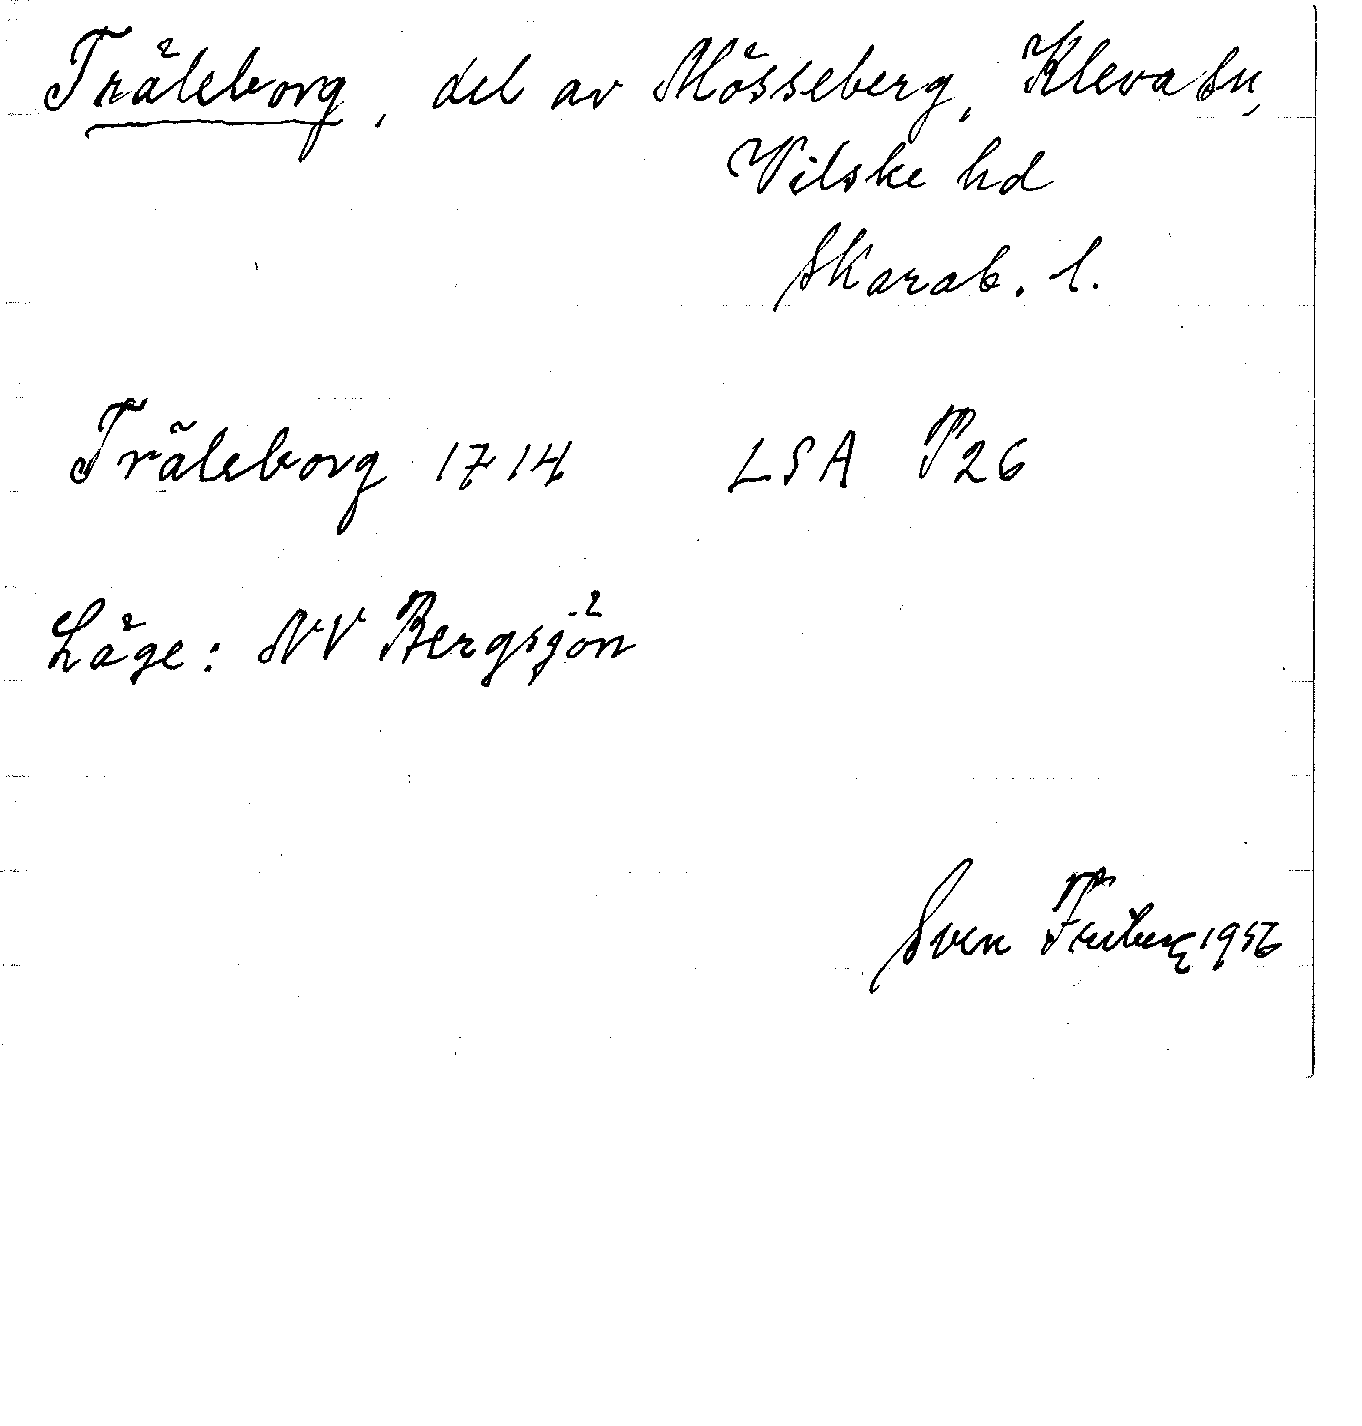 Träleborg, del av Mösseberg, Kleva sn,
Vilske hd
Skarab. l.
Träleborg 1714 LSA P26
Läge: NV Bergsjön
Sven Friberg 1956